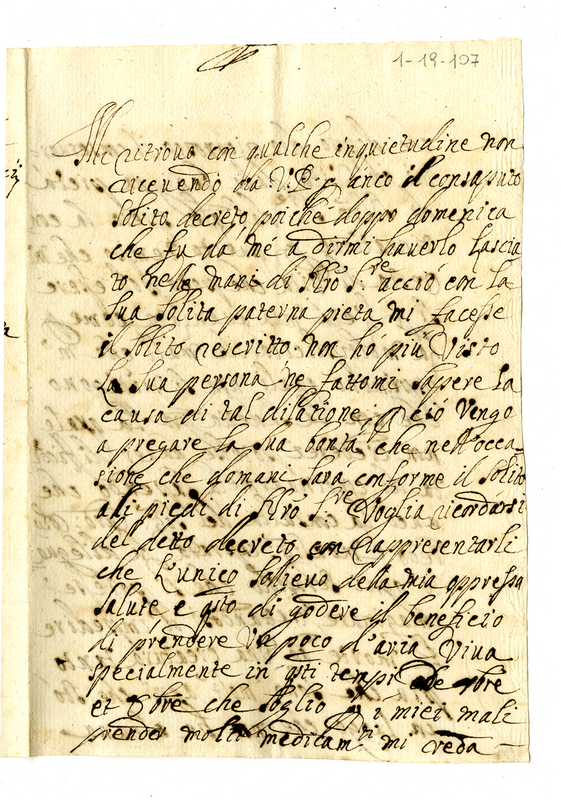 1-19-107
Mi ritrovo con qualche inquietudine non
ricevendo da V.P. p anco il consaputo
solito decreto, poiche doppo domenica
che fu da me a dirmi haverlo lascia
to nelle mani di Nro S.re acciò con la
sua solita paterna pieta mi facesse
il solito rescritto. non hò più visto
la sua persona ne fattomi sapere la
causa di tal dilatione; p ciò vengo
a pregare la sua bontà, che nell'occa
sione che domani sarà conforme il solito
ali piedi di Nro S.re voglia ricordarsi
del detto decreto con rappresentarli
che l'unico sollievo della mia oppressa
salute e qsto di godere il beneficio
di prendere un poco d'aria viva
specialmente in qsti tempi de 7bre
et 8bre che soglio p i miei mali
prender molti medicam.ti mi creda